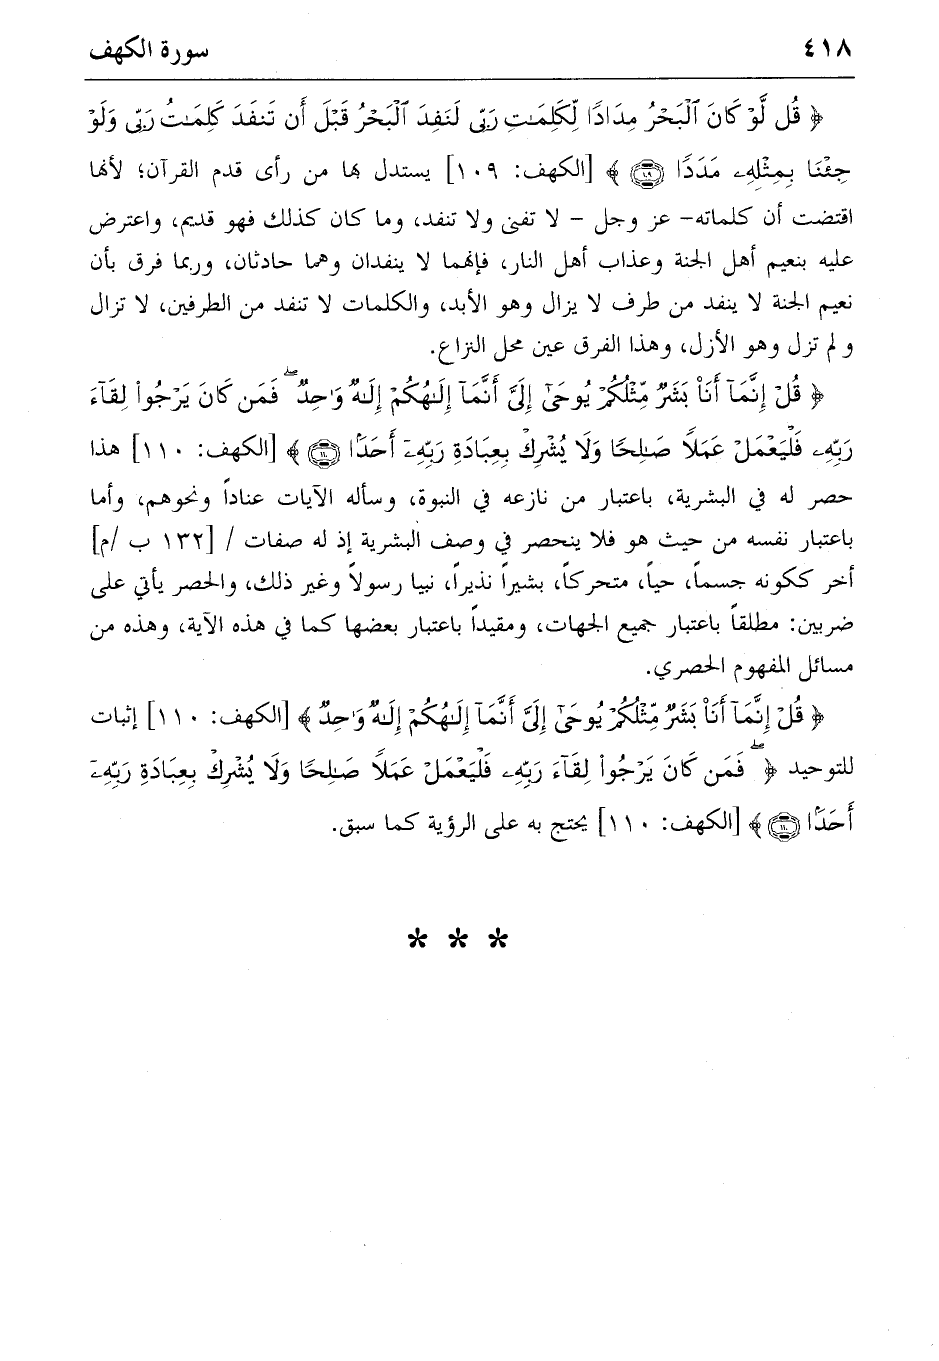 ٤١٨
سورة الكهف
﴿ قُل لَّوْ كَانَ ٱلْبَحْرُ مِدَادًا لِّكَلِمَـٰتِ رَبِّى لَنَفِدَ ٱلْبَحْرُ قَبْلَ أَن تَنفَدَ كَلِمَـٰتُ رَبِّى وَلَوْ
جِئْنَا بِمِثْلِهِۦ مَدَدًا ١٠٩ ﴾ [الكهف: ١٠٩] يستدل بها من رأى قدم القرآن؛ لأنها
اقتضت أن كلماته- عز وجل - لا تفنى ولا تنفد، وما كان كذلك فهو قديم، واعترض
عليه بنعيم أهل الجنة وعذاب أهل النار، فإنهما لا ينفدان وهما حادثان، وربما فرق بأن
نعيم الجنة لا ينفد من طرف لا يزال وهو الأبد، والكلمات لا تنفد من الطرفين، لا تزال
و لم تزل وهو الأزل، وهذا الفرق عين محل النزاع.
﴿ قُلْ إِنَّمَآ أَنَا۠ بَشَرٌ مِّثْلُكُمْ يُوحَىٰٓ إِلَىَّ أَنَّمَآ إِلَـٰهُكُمْ إِلَـٰهٌ وَٰحِدٌ ۖ فَمَن كَانَ يَرْجُوا۟ لِقَآءَ
رَبِّهِۦ فَلْيَعْمَلْ عَمَلًا صَـٰلِحًا وَلَا يُشْرِكْ بِعِبَادَةِ رَبِّهِۦٓ أَحَدًۢا ١١٠ ﴾ [الكهف: ١١٠] هذا
حصر له في البشرية، باعتبار من نازعه في النبوة، وسأله الآيات عناداً ونحوهم، وأما
باعتبار نفسه من حيث هو فلا ينحصر في وصف البشرية إذ له صفات / [١٣٢ ب /م]
أخر ككونه جسماً، حياً، متحركاً، بشيراً نذيراً، نبيا رسولاً وغير ذلك، والحصر يأتي على
ضربين: مطلقاً باعتبار جميع الجهات، ومقيداً باعتبار بعضها كما في هذه الآية، وهذه من
مسائل المفهوم الحصري.
﴿ قُلْ إِنَّمَآ أَنَا۠ بَشَرٌ مِّثْلُكُمْ يُوحَىٰٓ إِلَىَّ أَنَّمَآ إِلَـٰهُكُمْ إِلَـٰهٌ وَٰحِدٌ ﴾ [الكهف: ١١٠] إثبات
للتوحيد ﴿ ۖ فَمَن كَانَ يَرْجُوا۟ لِقَآءَ رَبِّهِۦ فَلْيَعْمَلْ عَمَلًا صَـٰلِحًا وَلَا يُشْرِكْ بِعِبَادَةِ رَبِّهِۦٓ
أَحَدًۢا ١١٠ ﴾ [الكهف: ١١٠] يحتج به على الرؤية كما سبق.
* * *